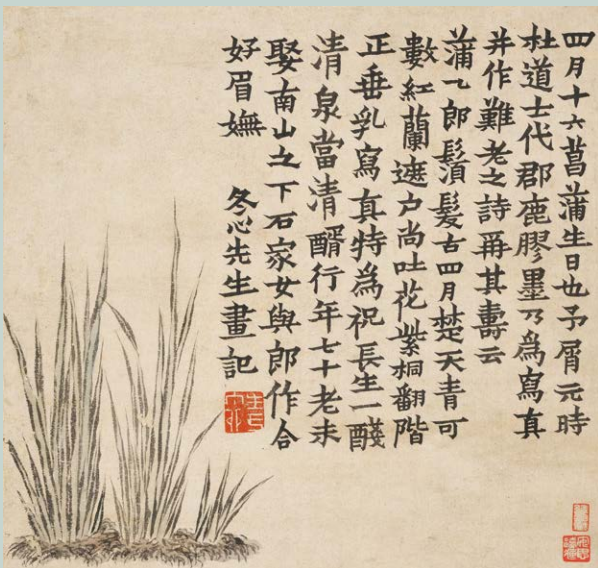 四月十六菖蒲生日也予屑元時
杜道士代郡鹿膠墨乃為寫真
并作難老之詩再其壽云
蒲乀郎鬚髮古四月楚天青可
數紅蘭遮户尚吐花紫桐翻階
正垂乳寫真特為祝長生一醆
清泉當清醑行年七十老未
娶南山之下石家女與郎作合
好眉嫵 冬心先生畫記